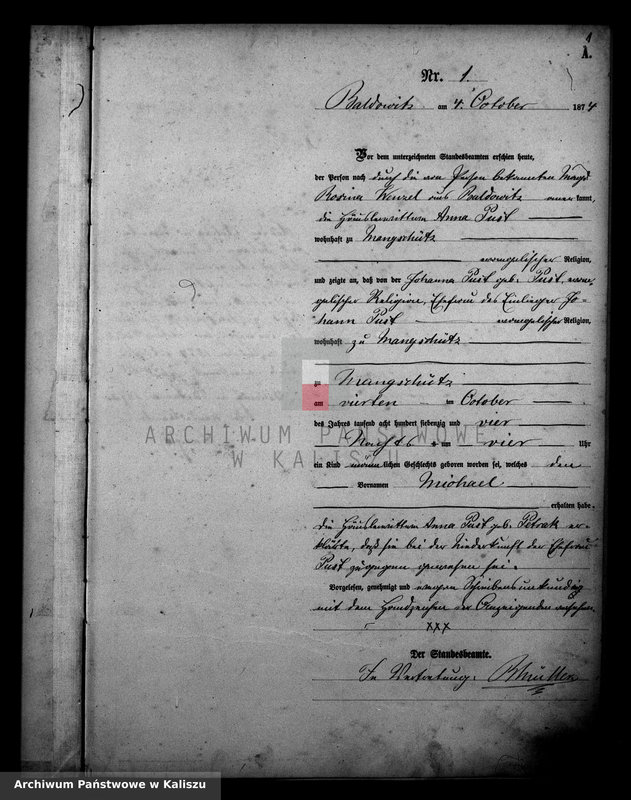 1
A.
Nr. 1.
Baldowitz am 4. October 1874
Vor dem unterzeichneten Standesbeamten erschien heute,
der Person nach durch die von Person bekannten Magd
Rosina Wenzel aus Baldowitz anerkannt,
die Häuslerwittwe Anna Pust
wohnhaft zu Mangschütz
evangelischer Religion,
und zeigte an, daß von der Johanna Pust geb. Pust, evan-
gelischer Religion, Ehefrau des Einlieger Jo-
hann Pust evangelischer Religion,
wohnhaft zu Mangschütz
zu Mangschütz
am vierten im October
des Jahres tausend acht hundert siebenzig und vier
Nachts um vier Uhr
ein Kind männlichen Geschlechts geboren worden sei, welches den
Vornamen Michael
erhalten habe.
Die Häuslerwittwe Anna Pust geb. Petrak er-
klärte, daß sie bei der Niederkunft der Ehefrau
Pust zugegen gewesen sei.
Vorgelesen, genehmigt und wegen Schreibensunkundig
mit dem Handzeichen der Anzeigenden versehen.
xxx
Der Standesbeamte.
In Vertretung:
ARCHIWUM PAŃSTWOWE
W KALISZU
Archiwum Państwowe w Kaliszu